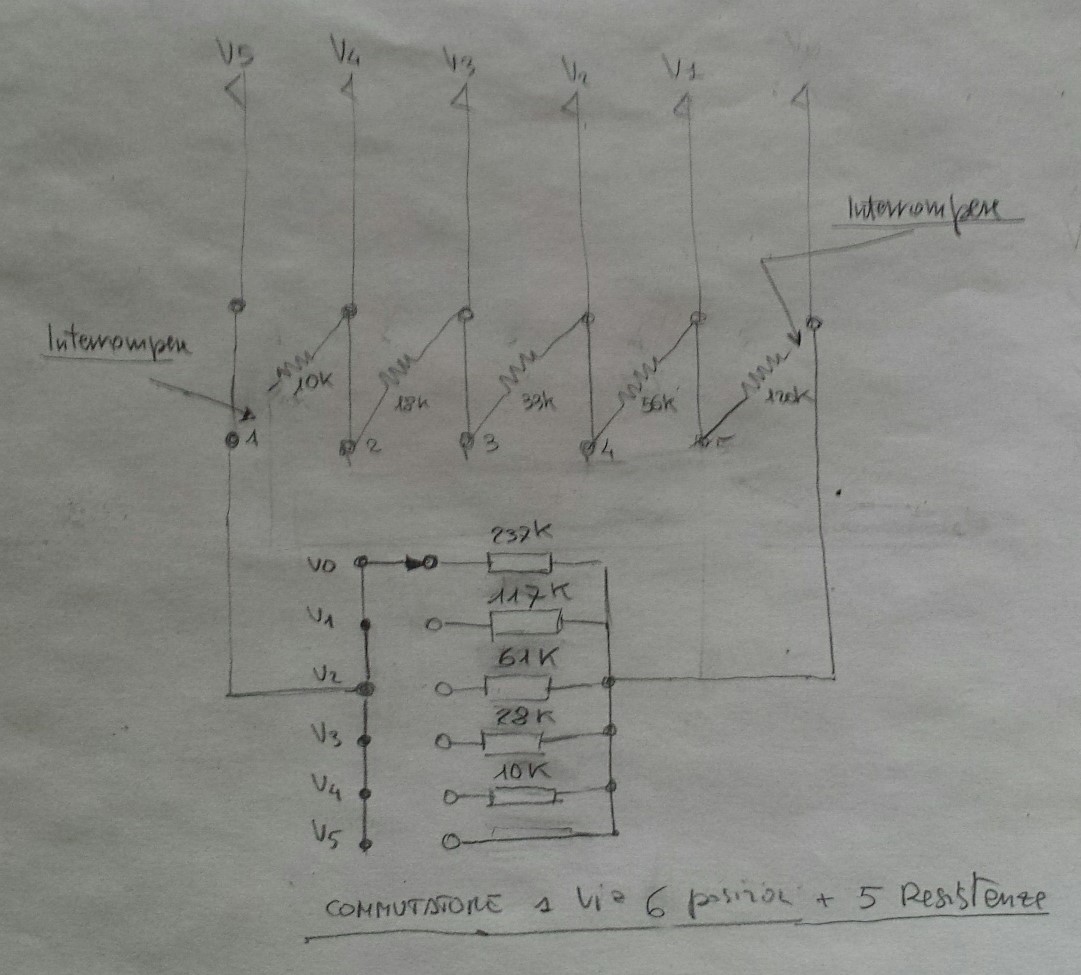 V5 V4 V3 V2 V1
Interrompere
Interrompere
10K 18K 33K 56K 120K
1 2 3 4 5
237K
V0
117K
V1
61K
V2
28K
V3
10K
V4
V5
COMMUTATORE 1 Via 6 posizioni + 5 Resistenze